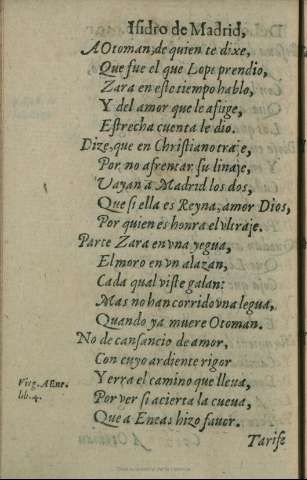 Isidro de Madrid,
A Otoman, de quien te dixe,
Que fue el que Lope prendio,
Zara en este tiempo hablo,
Y del amor que le aflige,
Estrecha cuenta le dio.
Dize, que en Christiano traje,
Por no afrentar su linaje,
Vayan a Madrid los dos,
Que si ella es Reyna, amor Dios,
Por quien es honra el vltraje.
Parte Zara en vna yegua,
El moro en vn alazan,
Cada qual viste galan:
Mas no han corrido vna legua,
Quando ya muere Otoman.
No de cansancio de amor,
Con cuyo ardiente rigor
Virg. AEne. lib. 4.
Yerra el camino que lleua,
Por ver si acierta la cueua,
Que a Eneas hizo fauor.
Tarife